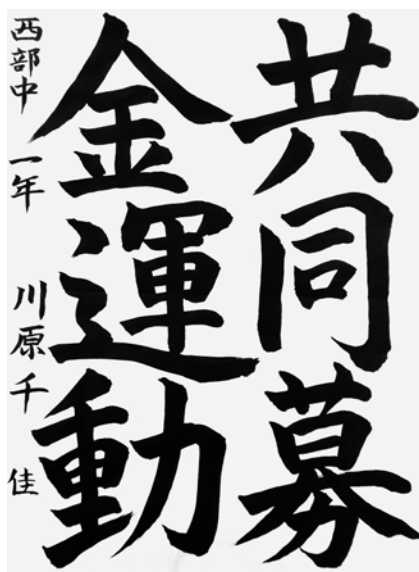 共同募
金運動
西部中 一年 川原千佳